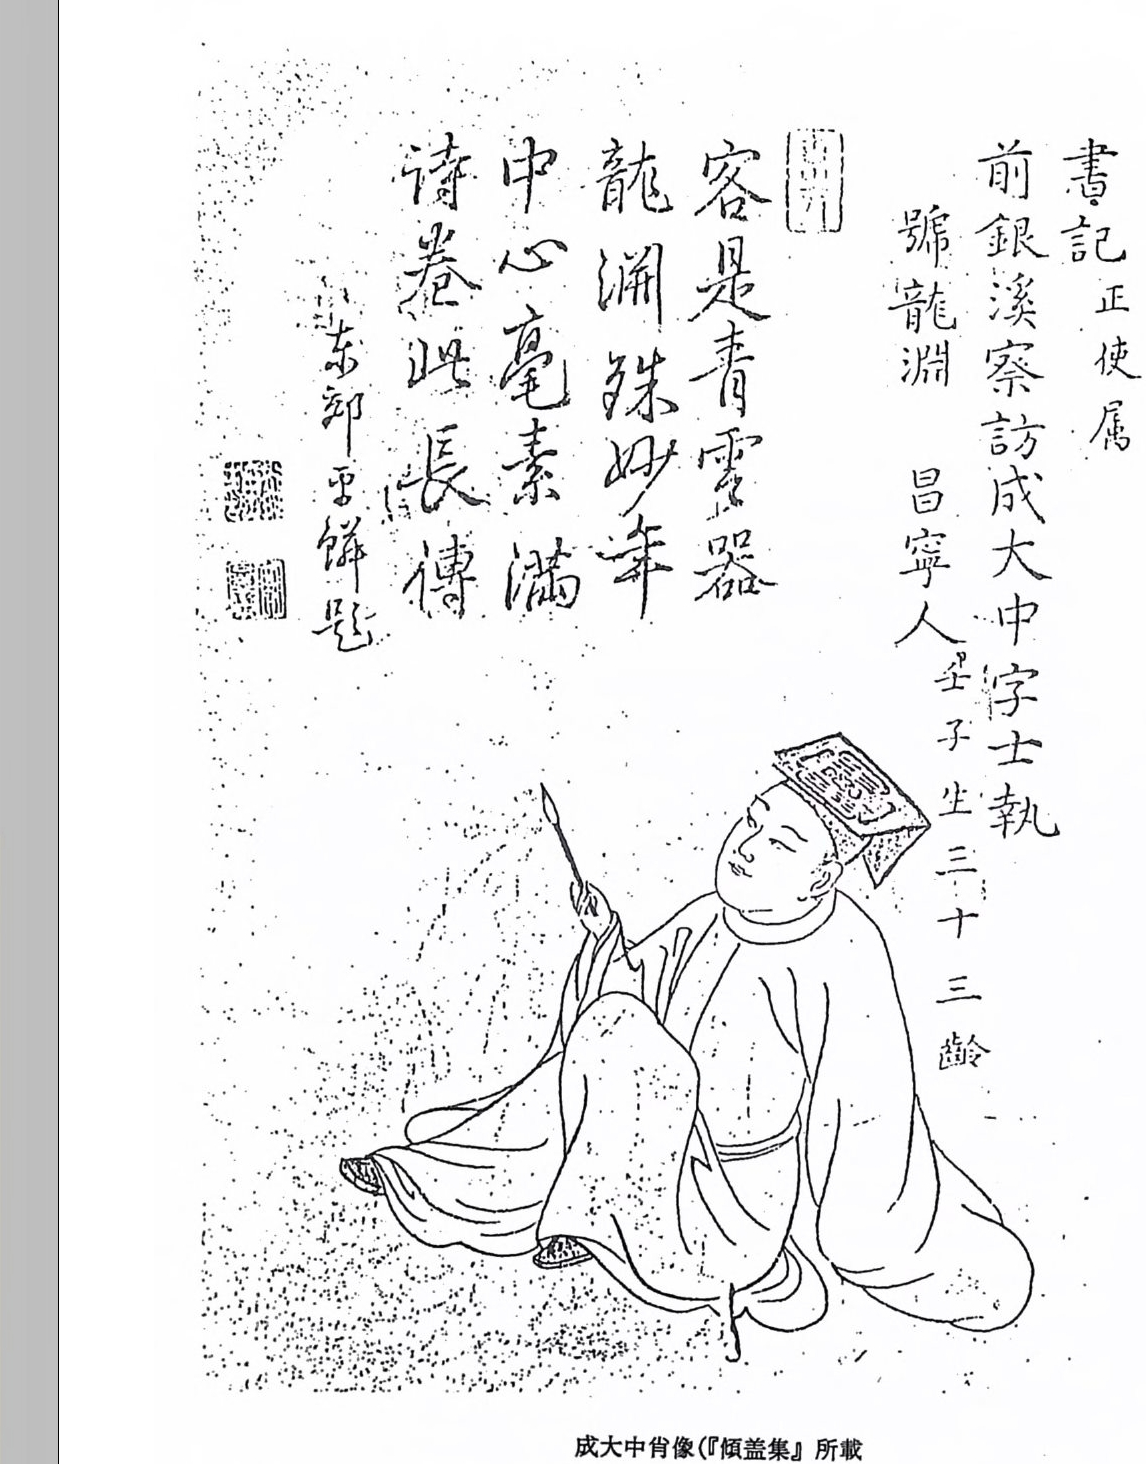 書記 正使属
前銀溪察訪成大中字士執
號龍淵 昌寧人 壬子生三十三齡
客是青雲器
龍淵銖妙年
中心毫素滿
詩卷此長傳
东郊平鱗題
成大中肖像(『傾盖集』所載